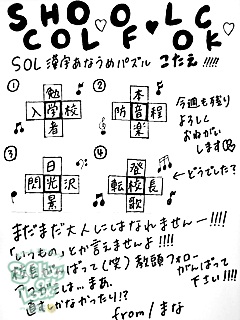 SHO♡O♥LC
COL♡F♥OK♡
SOL漢字あなうめパズル こたえ!!!!!
① 勉
入学校
者
② 本
防音程
楽
今週も残り
よろしく
おねがい
します
③ 日
閃光沢
景
④ 登
転校長
歌
どうでした?
まだまだ大人にはなれませんー!!!!
「いうもの」とか言えませんよ!!!!
がばって(笑)教頭フォロー
がんばって
下さい!!!!
は…まあ、
なかったり!?
from/まな